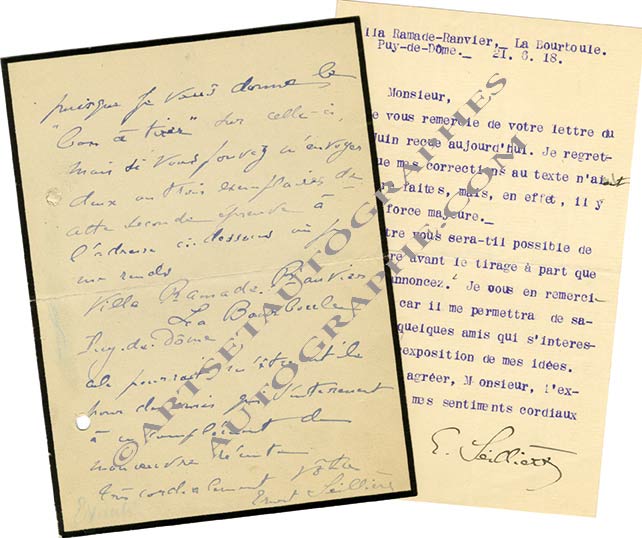 puisque je vous donne le
"bon à tirer" sur celle-ci,
mais si vous pouvez m'envoyer
deux ou trois exemplaires de
cette seconde épreuve à
l'adresse ci-dessus où je
me rends
Villa Ramade-Ranvier
La Bourboule
Puy-de-Dôme,
cela pourrait m'être utile
pour des amis qui s'intéressent
à un complément de
mon œuvre récente
Très cordialement Vôtre
Ernest Seillière
lla Ramade-Ranvier,_ La Bourboule.
Puy-de-Dôme._ 21. 6. 18.
Monsieur,
e vous remercie de votre lettre du
Juin reçue aujourd'hui. Je regret-
ue mes corrections au texte n'aient
faites, mais, en effet, il y
force majeure._
tre vous sera-til possible de
re avant le tirage à part que
annoncez. Je vous en remerci-
car il me permettra de sa-
quelques amis qui s'interes-
exposition de mes idées.
agréer, Monsieur, l'ex-
mes sentiments cordiaux
E. Seillière
© ARTSETAUTOGRAPHES
AUTOGRAPHE.COM